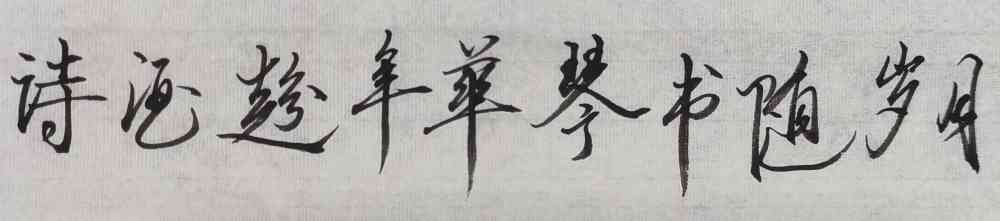 诗酒趁年华琴书随岁月